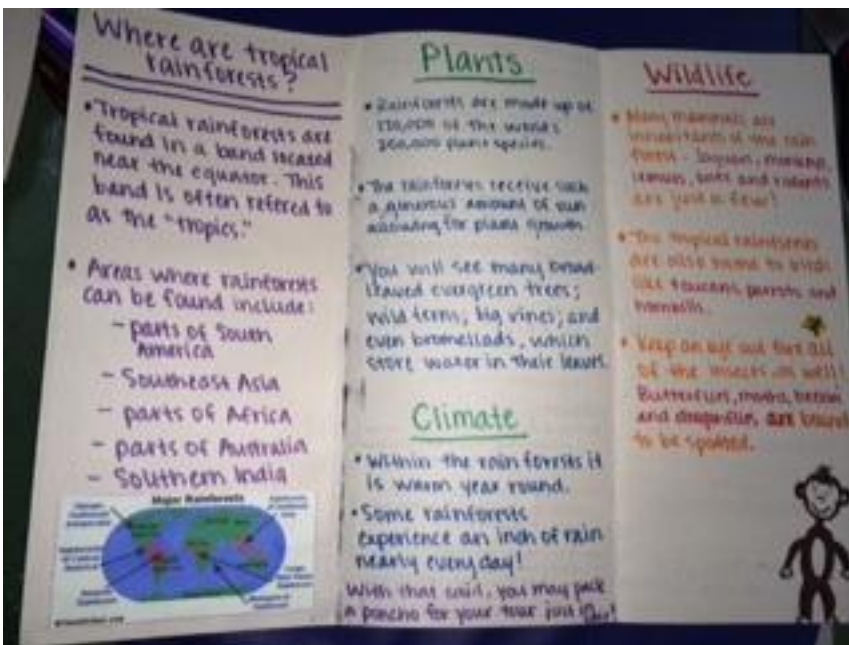 Where are tropical
rainforests?
• Tropical rainforests are
found in a band located
near the equator. This
band is often refered to
as the "tropics."
• Areas where rainforests
can be found include:
- parts of South
America
- Southeast Asia
- parts of Africa
- parts of Australia
- Southern India
Major Rainforests
Plants
• Rainforests are made up of
of the world's
plant species.
• The rainforests receive such
a generous amount of sun
allowing for plant growth
• You will see many broad-
leaved evergreen trees;
wild ferns, big vines, and
even bromeliads, which
store water in their leaves.
Climate
• Within the rain forests it
is warm year round.
• Some rainforests
experience an inch of rain
nearly every day!
With that said, you may pack
a poncho for your tour just in
Wildlife
• Many mammals are
inhabitants of the rain
forest - jaguars, monkeys,
lemurs, bats and rodents
are just a few!
• The tropical rainforests
are also home to birds
like toucans, parrots and
hornbills.
• Keep an eye out for all
of the insects, as well!
Butterflies, moths, beetles
and dragonflies, are bound
to be spotted.